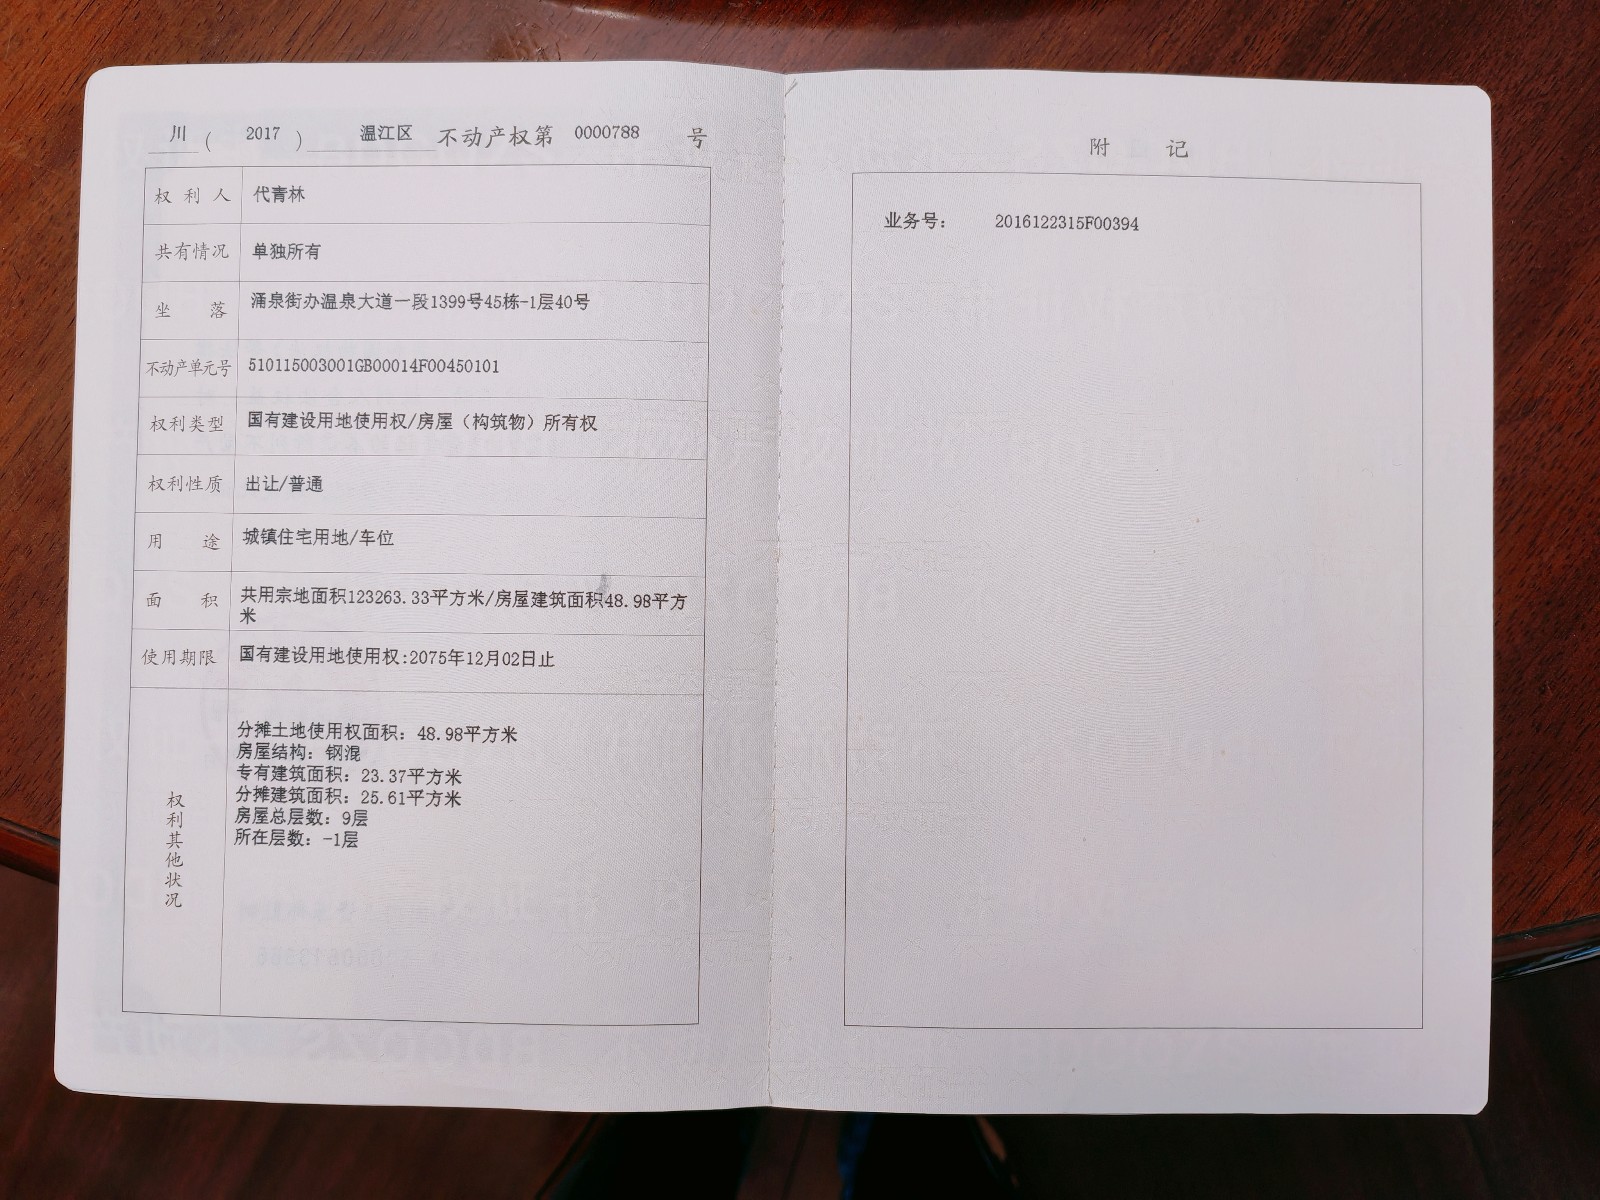 川（ 2017 ）温江区 不动产权第 0000788 号
权利人 代青林
共有情况 单独所有
坐落 涌泉街办温泉大道一段1399号45栋-1层40号
不动产单元号 510115003001GB00014F00450101
权利类型 国有建设用地使用权/房屋（构筑物）所有权
权利性质 出让/普通
用途 城镇住宅用地/车位
面积 共用宗地面积123263.33平方米/房屋建筑面积48.98平方
米
使用期限 国有建设用地使用权:2075年12月02日止
权利其他状况
分摊土地使用权面积：48.98平方米
房屋结构：钢混
专有建筑面积：23.37平方米
分摊建筑面积：25.61平方米
房屋总层数：9层
所在层数：-1层
附记
业务号： 2016122315F00394